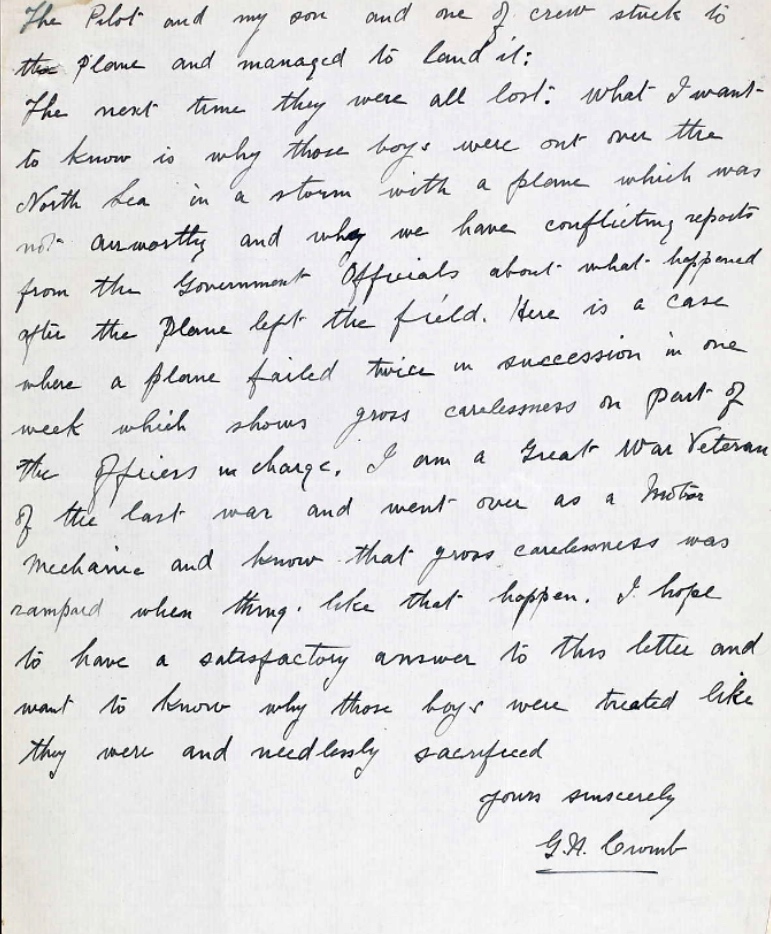 The Pilot and my son and one of crew stuck to
the plane and managed to land it:
The next time they were all lost. What I want
to know is why those boys were out over the
North Sea in a storm with a plane which was
not airworthy and why we have conflicting reports
from the Government Officials about what happened
after the Plane left the field. Here is a case
where a plane failed twice in succession in one
week which shows gross carelessness on part of
the Officers in charge. I am a Great War Veteran
of the last war and went over as a Motor
Mechanic and know that gross carelessness was
rampard when thing. like that happen. I hope
to have a satisfactory answer to this letter and
want to know why those boys were treated like
they were and needlessly sacrificed
yours sinscerely
G.H. Cromb